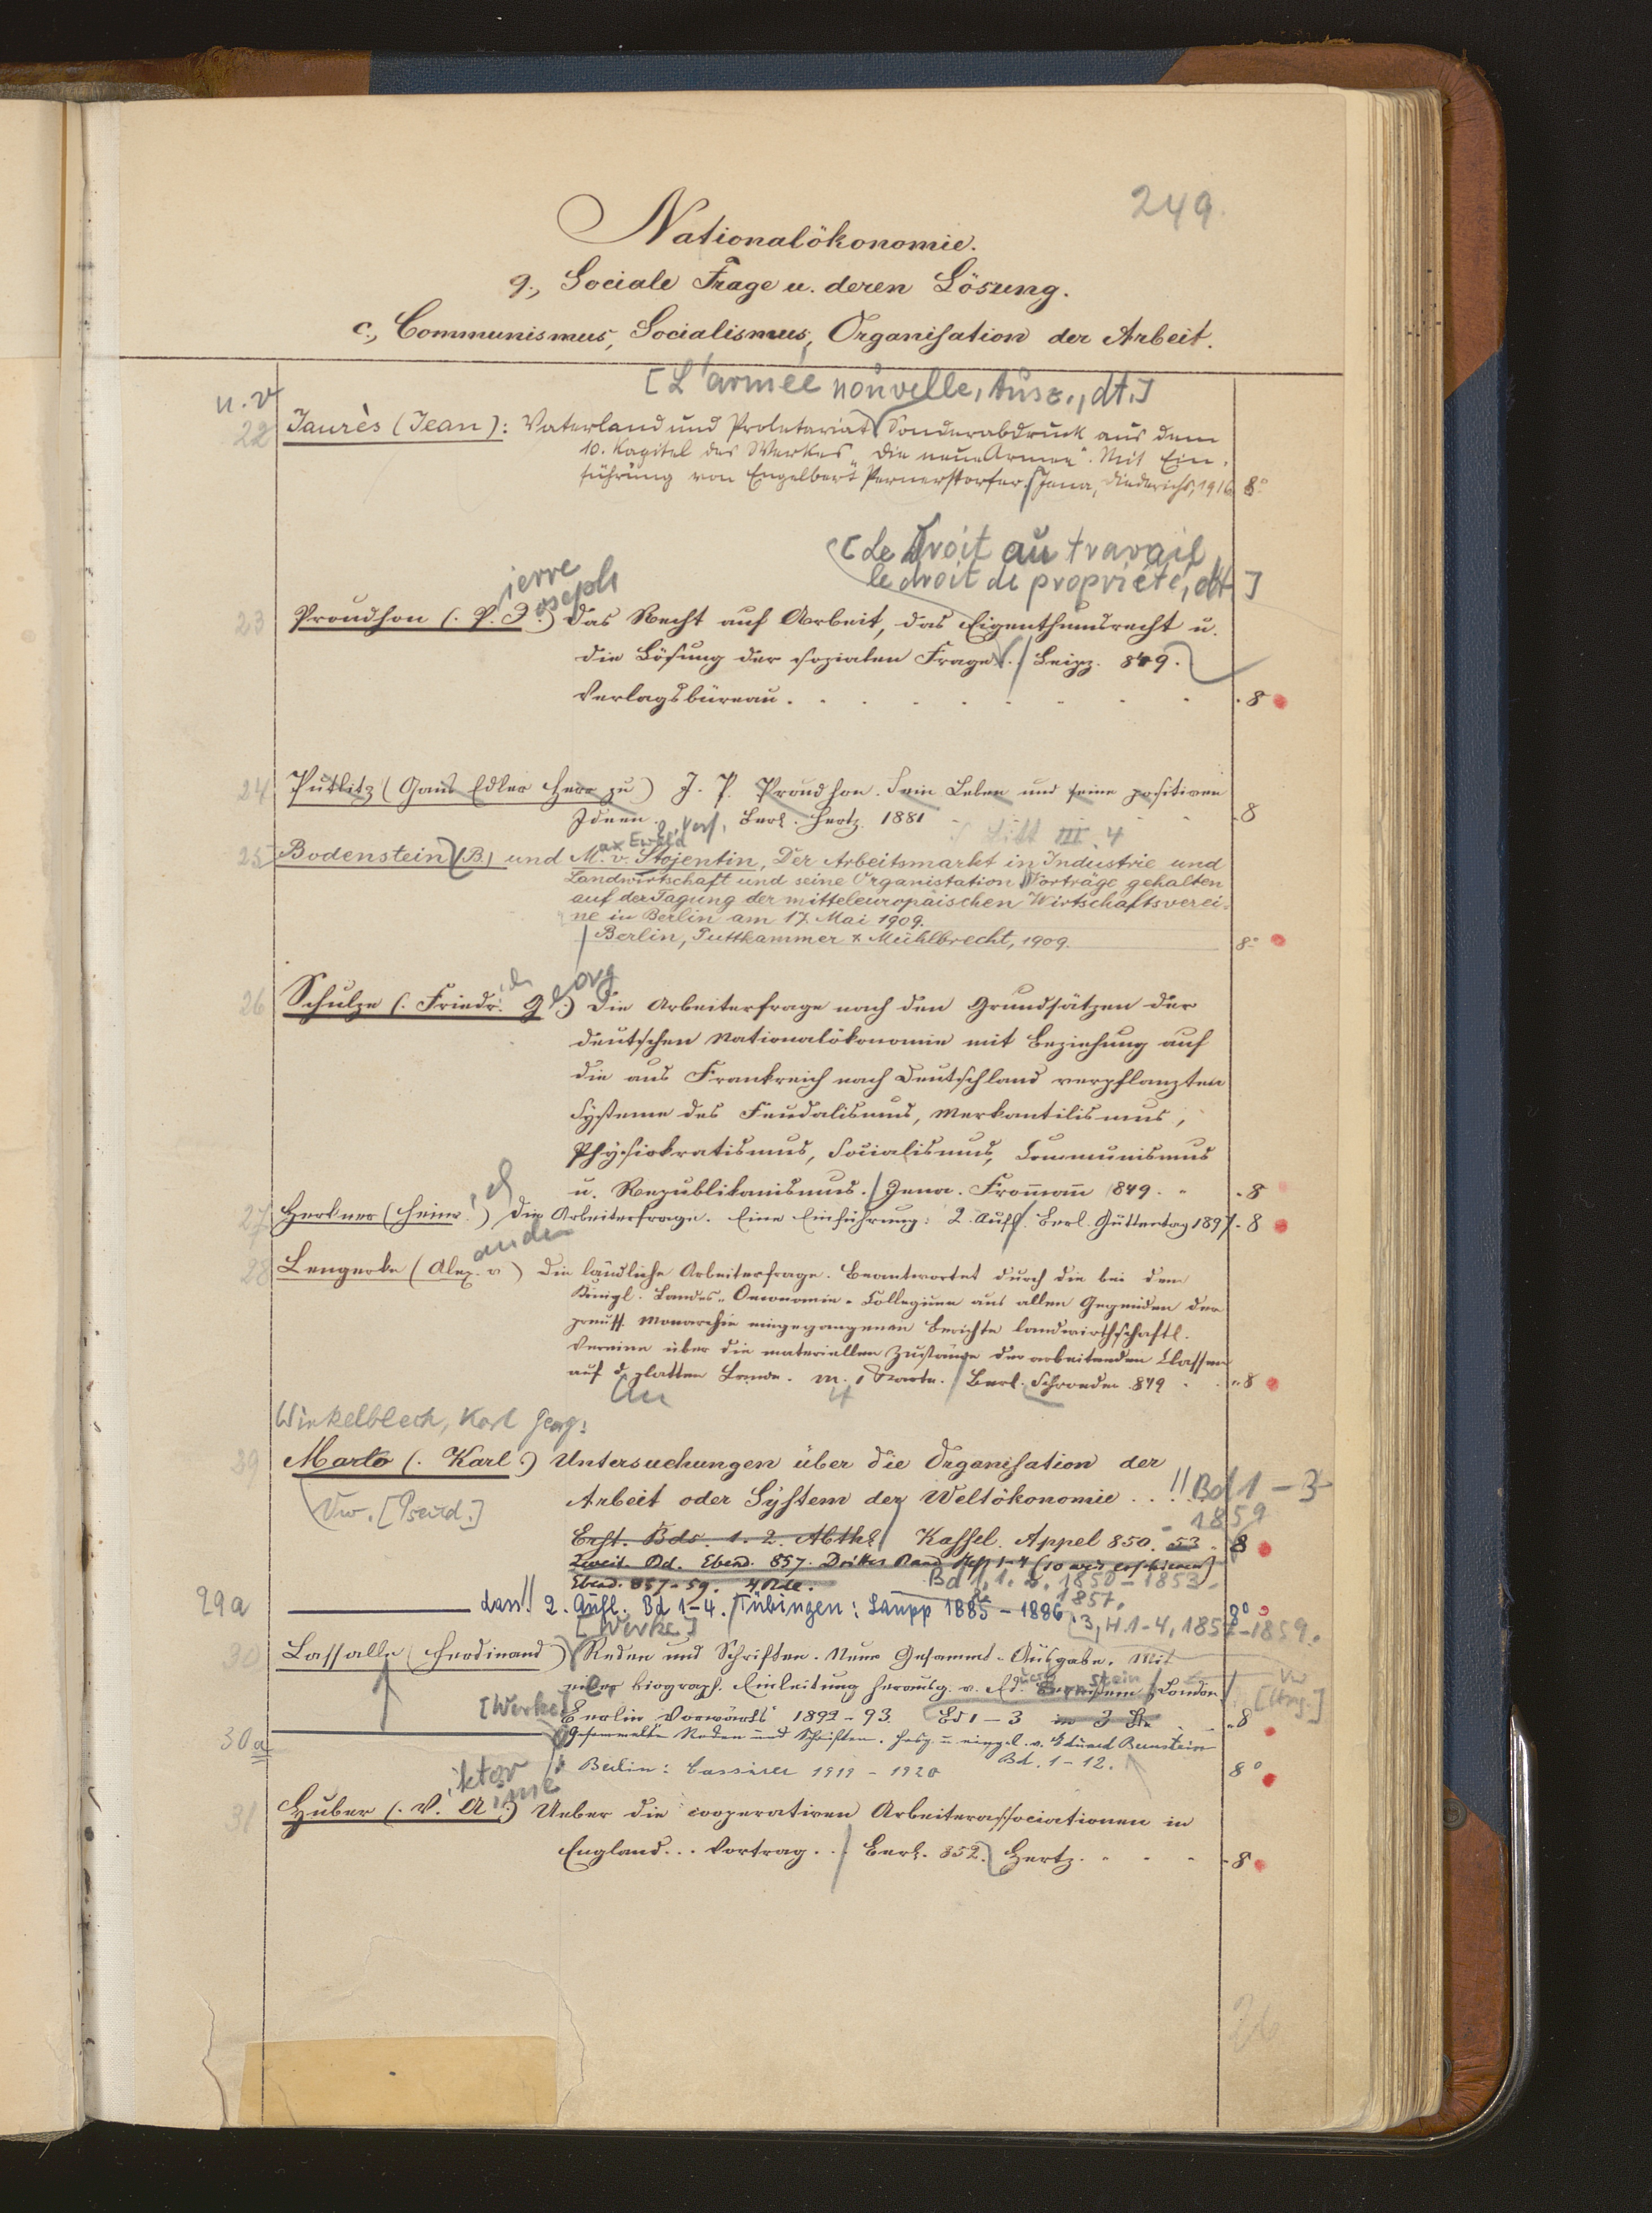 249.
Nationalökonomie.
g., Sociale Frage u. deren Lösung.
c., Communismus, Socialismus, Organisation der Arbeit.
[L'armée nouvelle, Ausz., dt.]
u. v
22 Jaurès (Jean): Vaterland und Proletariat Sonderabdruck aus dem
10. Kapitel des Werkes "Die neue Armee". Mit Ein-
führung von Engelbert Pernerstorfer. Jena, Diederichs, 1916 8°
[Le Droit au travail,
le droit de propriété, dt.]
ierre
oseph
23 Proudhon (. P. J.) Das Recht auf Arbeit, das Eigenthumsrecht u.
die Lösung der sozialen Frage. . Leipz. 849.
Verlagsbüreau. . 8
24 Putlitz (Gans Edler Herr zu) J. P. Proudhon. Sein Leben und seine positiven
Ideen. Berl. Hertz. 1881 8
III. 4
ax Ewald
25 Bodenstein (B.) und M. v. Stojentin, Der Arbeitsmarkt in Industrie und
Landwirtschaft und seine Organistation Vorträge gehalten
auf der Tagung der mitteleuropäischen Wirtschaftsverei-
ne in Berlin am 17. Mai 1909.
Berlin, Puttkammer & Mühlbrecht, 1909. 8°
ich
eorg
26 Schulze (. Friedr. G.) Die Arbeiterfrage nach den Grundsätzen der
deutschen Nationalökonomie mit Beziehung auf
die aus Frankreich nach Deutschland verpflanzten
Systeme des Feudalismus, Merkantilismus,
Physiokratismus, Socialismus, Communismus
u. Republikanismus. Jena. Fromann 849. 8
ich
27 Herkner (Heinr.) Die Arbeiterfrage. Eine Einführung. 2. Aufl. Berl. Guttentag 1897. 8
ander
28 Lengerke (Alex. v.) Die ländliche Arbeiterfrage. Beantwortet durch die bei dem
Königl. Landes-Oeconomie-Collegium aus allen Gegenden der
preuss. Monarchie eingegangenen Berichte landwirthschaftl.
Vereine über die materiellen Zustände der arbeitenden Classen
auf d. platten Lande. M. 1 Karte. Berl. Schroeder 849 8
Winkelblech, Karl Georg:
29 Marlo (. Karl.) Untersuchungen über die Organisation der
Arbeit oder System der Weltökonomie. . !! Bd 1-3
Vw. [Pseud.]
- 1859
Erst. Bds. 1. 2. Abthl Kassel. Appel 850. 53. 8
Zweit. Bd. Ebend. 857. Dritter Band Heft 1-4 (so weit erschienen)
Ebend. 857-59. 4 Bde.
Bd 1, 1. 2. 1850-1853.
1857.
29a dass. 2. Aufl. Bd 1-4. Tübingen: Laupp 1885-1886. 8°
3, H. 1-4, 1857-1859.
[Werke]
30 Lassalle (Ferdinand) Reden und Schriften. Neue Gesammt-Ausgabe. Mit
einer biograph. Einleitung herausg. v. Ed. Bernstein London
stein
Vw
[Hrsg.]
[Werke]
Berlin Vorwärts 1892-93. Bd 1-3 in 3 Bde 8
30a Gesammelte Reden und Schriften. Hrsg. u. eingel. v. Eduard Bernstein
Berlin: Cassirer 1919-1920 Bd. 1-12. 8°
iktor
imé
31 Huber (. V. A.) Ueber die cooperativen Arbeiterassociationen in
England. . . Vortrag. . . Berl. 852. Hertz. 8
26